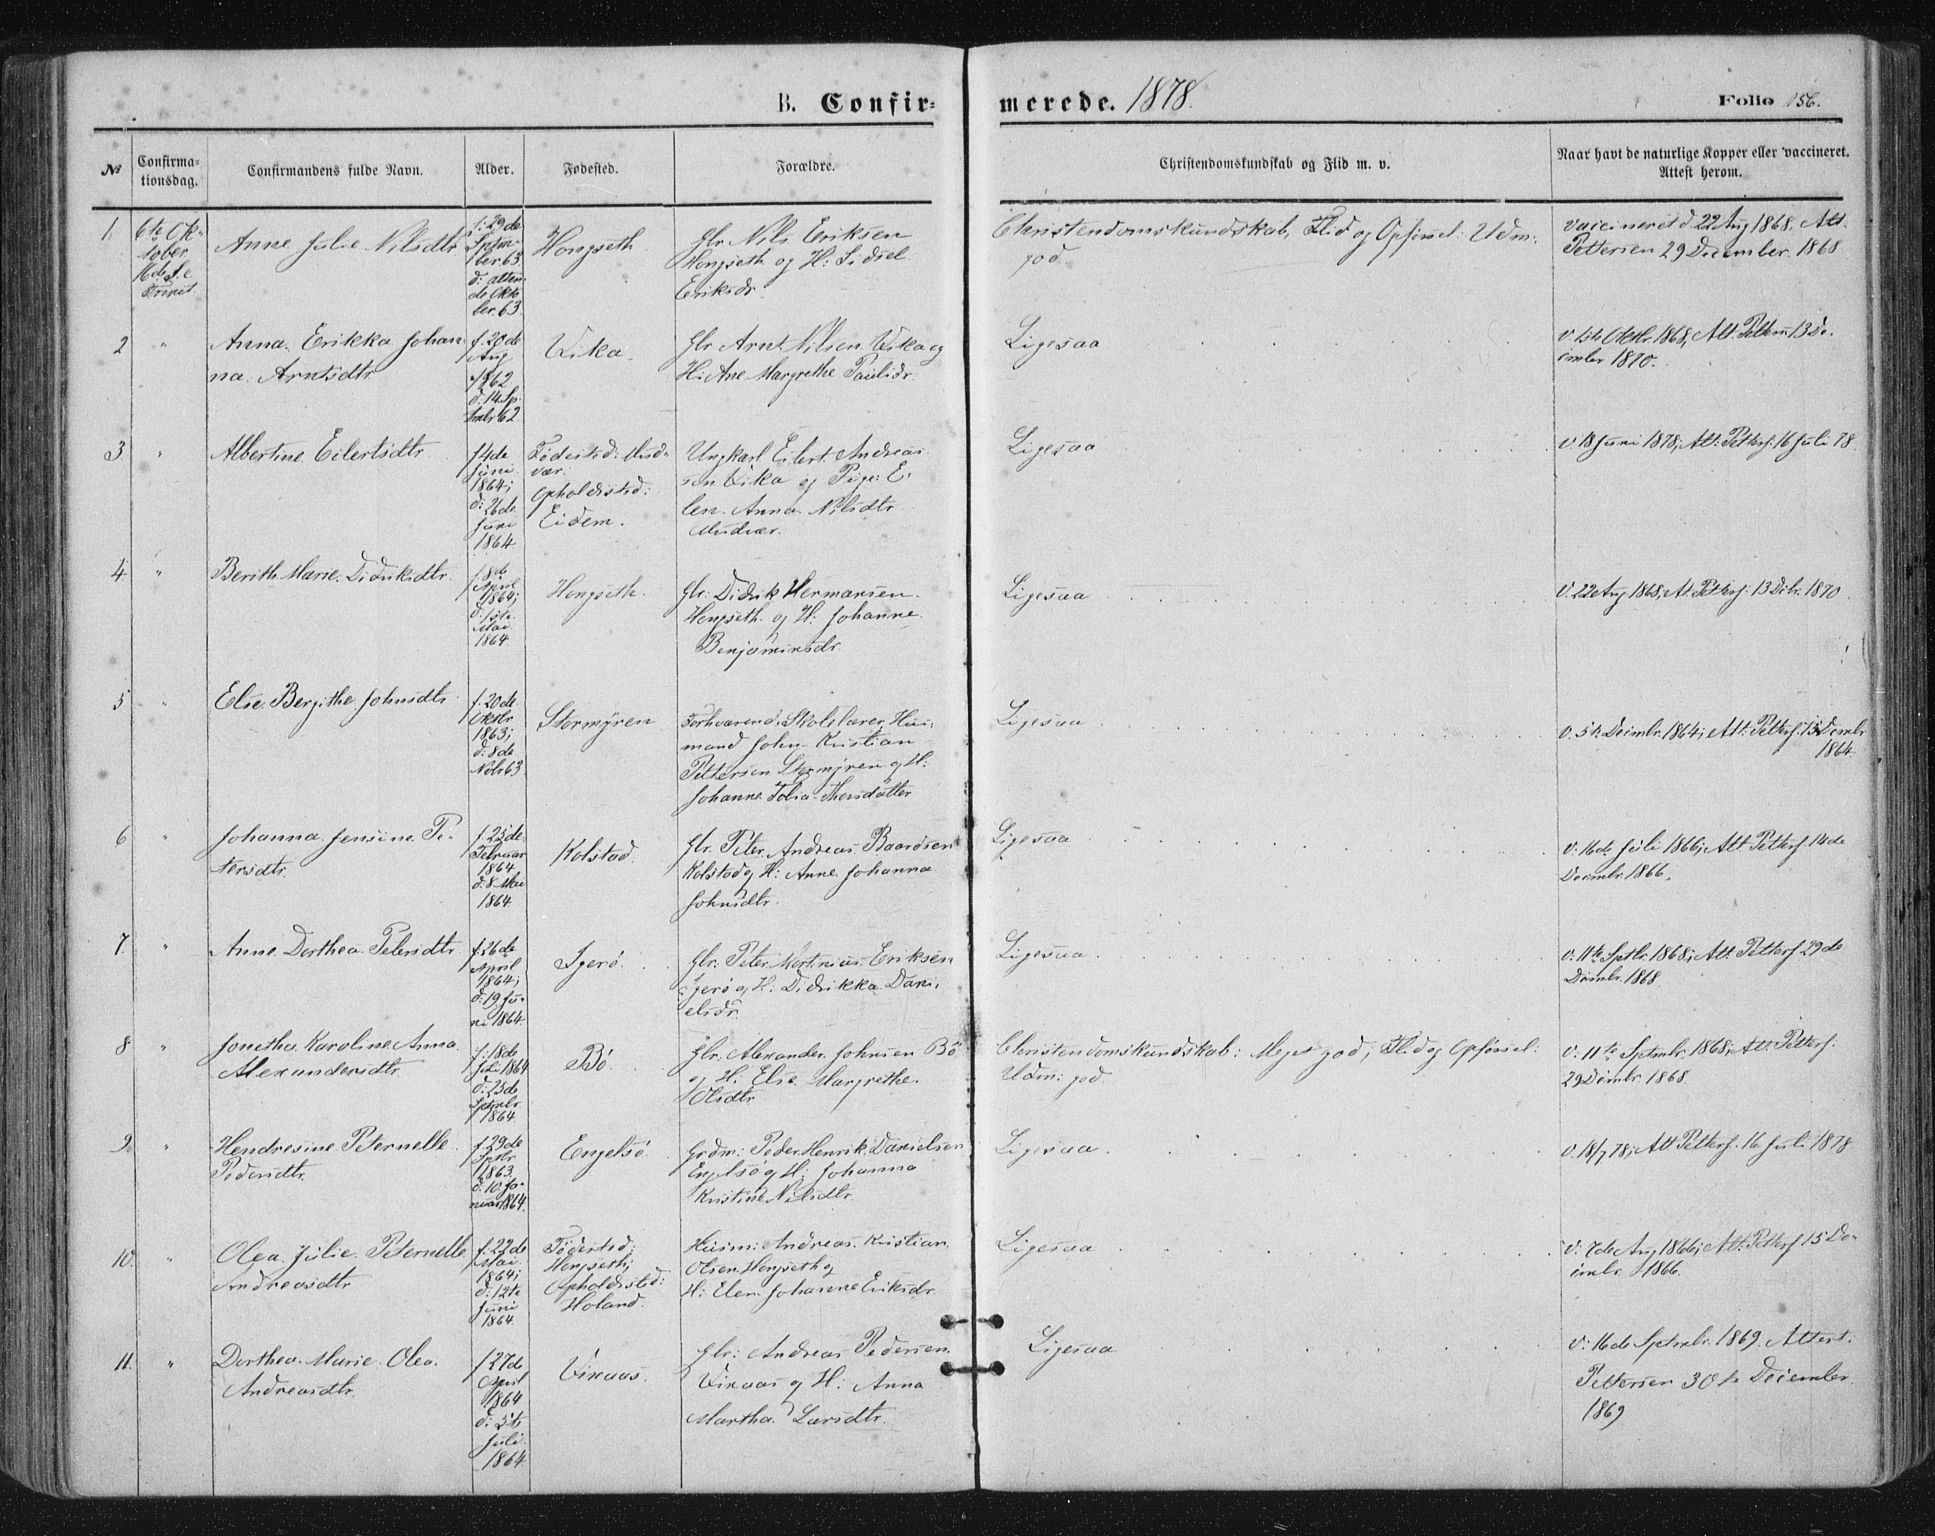 B. Confirmerede. 1878. Folio 156.
№ Confirmationsdag. Confirmandens fulde Navn. Alder. Fødested. Forældre. Christendomskundskab og Flid m. v. Naar havt de naturlige Kopper eller vaccineret. Attest herom.
1.
6te Ok-
tober
16de S. e
Trinit.
Anne Julie Nilsdtr
f: 29de
Septm-
ber 63
d:
de Okto
ber. 63
Hongseth
Gbr Nils Eriksen
Hongseth og H: Sidsel
Eriksdr.
Christendomskundskab, Flid og Opførsel: Udm:
god.
vaccineret d 22 Aug 1868, Att.
Pettersen 29 December. 1868
2 "
Anna. Erikka Johan
na. Arntsdtr
f. 20de
Aug
1862
d: 14 Sp
tmbr 62
Vika.
Gbr Arnt Nilsen Vika og
H: Ane Margrethe Paulsdr.
Ligesaa
v. 1ste Oktbr. 1868, Att. Petters 13 De-
cimbr 1870.
3. "
Albertine Eilertsdtr
f 4de
Juni
1864;
d: 26de
Juni
1864
Fødested:
vær:
Opholdssted:
Eidem.
Ungkarl Eilert. Andreas
sen Vika og Pige: E-
len. Anna. Nilsdtr
Ligesaa
v. 18 Juni 1878; Att: Petters. 16 Juli 78
4. "
Berith. Marie. Didriksdtr.
f. 8de
April
1864;
d: 1ste
Mai
1864
Hongseth.
Gbr: Didrik Hermansen.
Hongseth. og H: Johanne
Benjaminsdr
Ligesaa
v. 22 Aug 1868; Att. Petters: 13 Dcbr. 1870
5 "
Else. Bergithe Johnsdtr
f. 20de
Oktbr
1863;
d: 8de
Nvbr 63
Stormyren
Forhværend: Skolelærer, Hus-
mand John Kristian
Pettersen Stormyren og H:
Johanne Tobia Thorsdatter
Ligesaa
v. 5te Dcimbr. 1864; Att: Petters. 15 Dcembr
1864.
6 "
Johanna. Jensine. Pe-
tersdtr.
f. 25de
Februar
1864
d: 8 Mai
1864
Kolstad.
Gbr. Peter. Andreas Baardsen
Kolstad og H: Anne Johanna
Johnsdtr.
Ligesaa
v: 16de Juli 1866; Att Petters. 14de
Decimbr. 1866.
7. "
Anne Dorthea Petersdtr
f. 26de
April
1864;
d: 19 Ju-
ni 1864
Igerø.
Gbr: Peter Mortinius. Eriksen
Igerø og H: Didrikka Dani-
elsdr.
Ligesaa
v: 11te Septbr. 1868; Att Petters 29de
Dcimbr. 1868
8 "
Jonetha Karoline Anna
Alexandersdtr.
f: 18de
Juli 1864
d: 25de
Septmbr
1864
Bø.
Gbr. Alexander. Johnsen Bø
og H: Else Margrethe.
Olsdtr.
Christendomskundskab: Meget god, Flid og Opførsel:
Udm: god.
v: 11te Septmbr. 1868; Att: Petters.
29 Dcimbr. 1868.
9. "
Hendresine Peternelle
Pedersdtr.
f. 29de
Septbr
1863.
d: 10 Ja-
nuar 1864.
Engelsø.
Grdm: Peder Henrik Danielsen
Engelsø og H: Johanna
Kristine Nilsdtr.
Ligesaa
v. 18/7 78; Att Petters. 16 Juli 1878
10. "
Olea. Julie. Peternelle
Andreasdtr
f. 22de
Mai
1864;
d: 12te
Juni
1864
Fødested:
Hongseth;
Opholdssted:
Holand.
Husm: Andreas. Kristian.
Olsen Hongseth og
H: Elen Johanne Eriksdr.
Ligesaa
v: 7de Aug 1866; Att: Petters 15 De-
cimbr. 1866.
11. "
Dorthea. Marie. Olea.
Andreasdtr.
f 27de
April
1864
d: 3te
Juli
1864
Vikaas.
Gbr: Andreas Pedersen
Vikaas og H: Anna
Martha Larsdtr.
Ligesaa
v: 16de Septmbr. 1869. Attest.
Pettersen 30te Deicember
1869